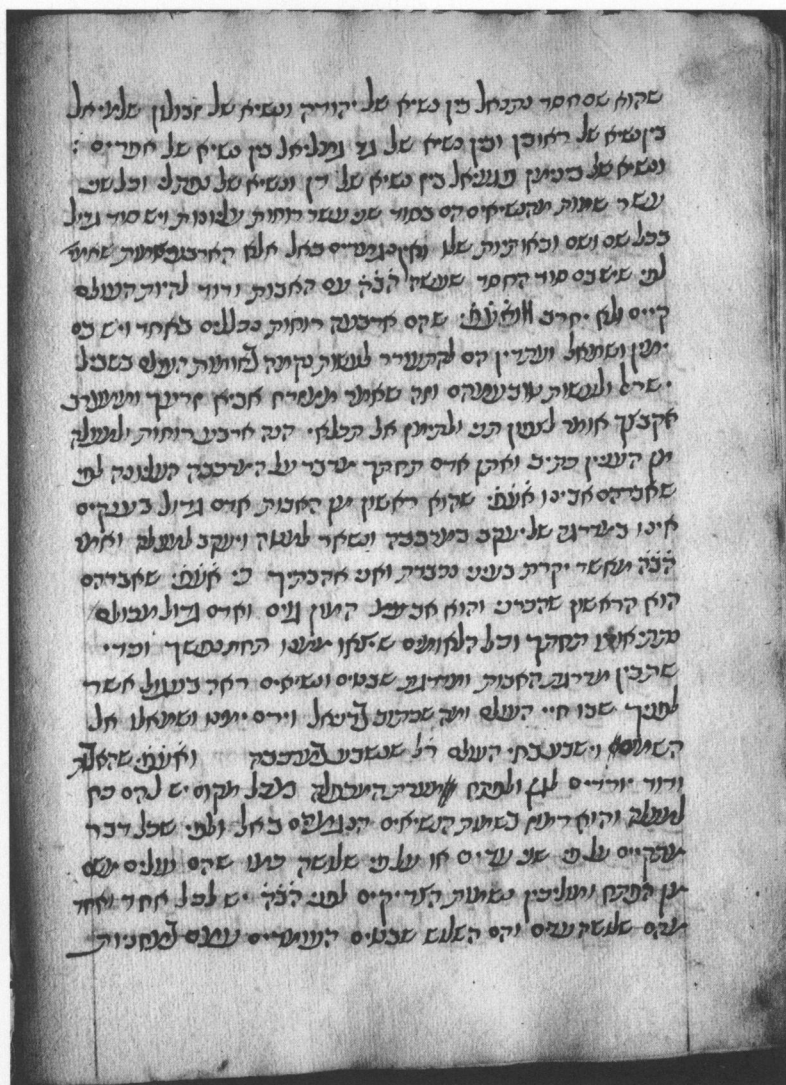 שהוא שם חסד נתנאל בין נשיא של יהודה ונשיא של זבולון שלמיאל
בין נשיא של ראובן ובין נשיא של גד גמליאל בין נשיא של אפרים :
ונשיא של בנימין פגעיאל בין נשיא של דן ונשיא של נפתלי וכל שנים
עשר שמות הנשיאים הם בסוד שנים עשר רוחות עליונות ויש סוד גדול
בכל שם ושם ובאותיות שלו ואין נגמרים באל אלא הארבע
לפי שיש בם סוד החסד שעשה הֹבֹּהֹ עם האבות ודוד להיות העולם
קיים ולא יחרב שהם ארבעה רוחות נכללים באחד ויש בם
ימין ושמאל ועתידין הם להתעורר לעשות נקמה באומות העולם בשביל
ישראל ולעשות וזה שאמר ממזרח אביא זרעך וממערב
אקבצך אומר לצפון תני ולתימן אל תכלאי הנה ארבע רוחות ולמעלה
מן הענין כתיב ואתן אדם תחתיך ידבר על המרכבה העליונה לפי
שאברהם אבינו עֹאֹהֹ שהוא ראשון מן האבות אדם גדול בענקים
אינו במדרגה של יעקב במרכבה ונשאר למטה ויעקב למעלה ואמר
הֹבֹּהֹ מאשר יקרת בעיני נכבדת ואני אהבתיך כי שאברהם
הוא הראשון שהכרני והוא אב המון גוים ואדם גדול מכולם
אותו תחתך וכל הלאומים שיצאו ממנו תחת נפשך וכדי
שתבין מדרגת האבות ומדרגת שבטים ונשיאים ראה בעגול אשר
לפניך שבו חיי העולם ומה שכתוב בדניאל וירם ימינו ושמאלו אל
השמים וישבע בחי העולם רֹ֗ל שנשבע במרכבה
ודוד יורדים לגן ולפתח מערת המכפלה מכל מקום יש להם כח
למעלה והוא רמוז בשמות הנשיאים הנגמרים באל ולפי שכל דבר
מתקיים על פי שני עדים או על פי שלושה כמו שהם עולים משם
מן הפתח ומוליכין נשמות הצדיקים לפני הֹבֹּהֹ יש לכל אחד ואחד
מהם שלושה עדים והם השלוש שבטים העומדים עמהם במחניות